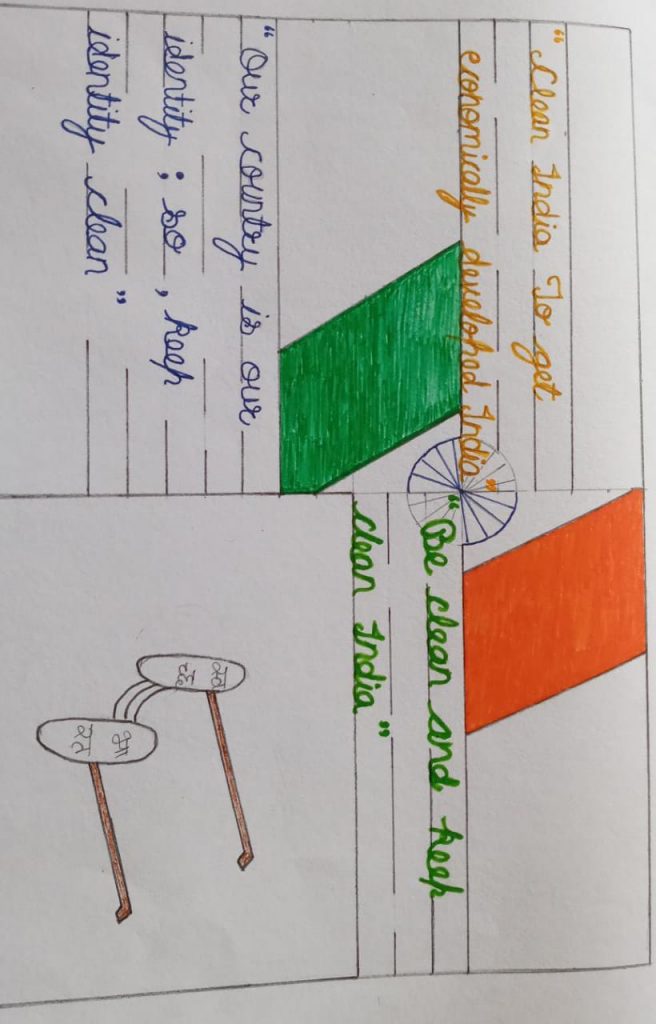 "Clean India To get
economically developed India"
"Be clean and keep
clean India"
"Our country is our
identity ; so , keep
identity clean"
स्व
च्छ
भा
रत